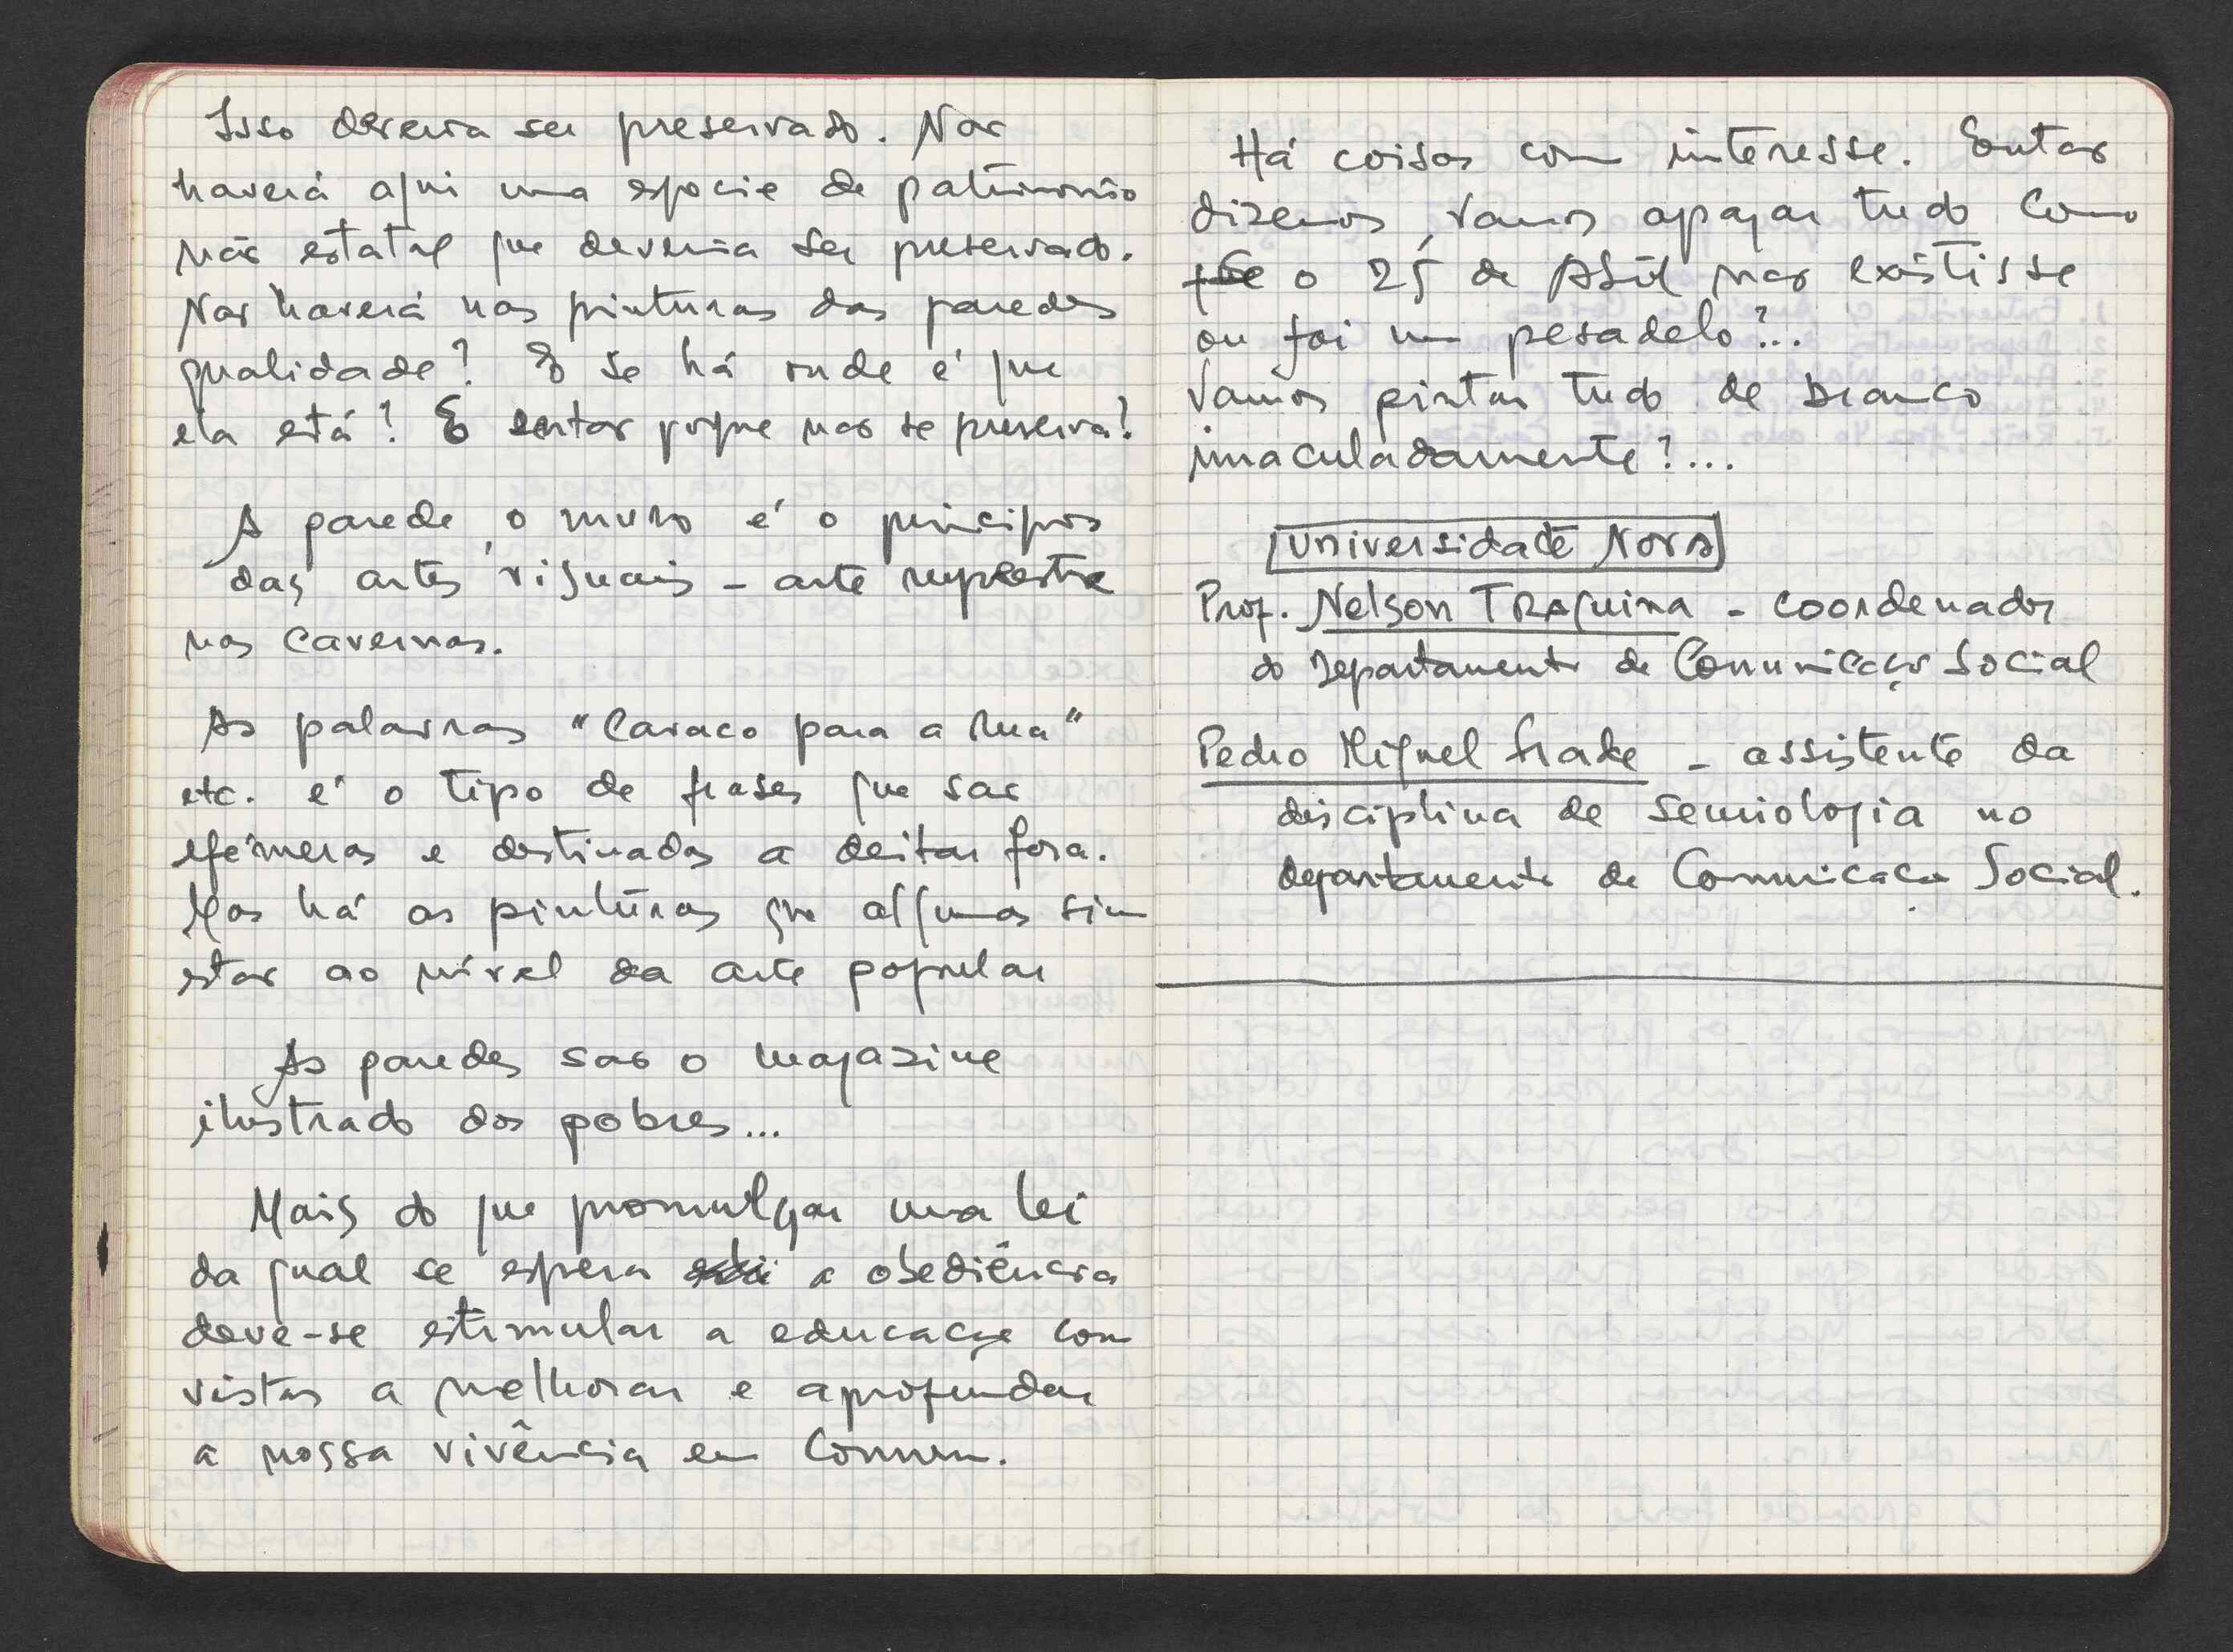 Isso deveria ser preservado. Não
haverá aqui uma espécie de património
não estatal que deveria ser preservado.
Não haverá nas pinturas das paredes
qualidade? E se há onde é que
ela está? E então porque não se preserva?
A parede, o muro é o princípios
das artes visuais - arte rupestre
nas cavernas.
As palavras "Cavaco para a rua"
etc. é o tipo de frases que são
efémeras e destinadas a deitar fora.
Mas há as pinturas que algumas sim
estão ao nível da arte popular
As paredes são o magazine
ilustrado dos pobres...
Mais do que promulgar uma lei
da qual se espera a obediência
deve-se estimular a educação com
vistas a melhorar e aprofundar
a nossa vivência em comum.
Há coisas com interesse. Então
dizemos, vamos apagar tudo como
se o 25 de Abril não existisse
ou foi um pesadelo?..
Vamos pintar tudo de branco
imaculadamente?...
Universidade Nova
Prof. Nelson Traquina - coordenador
do Departamento de Comunicação Social
Pedro Miguel Frade - assistente da
disciplina de Semiologia no
departamento de Comunicação Social.